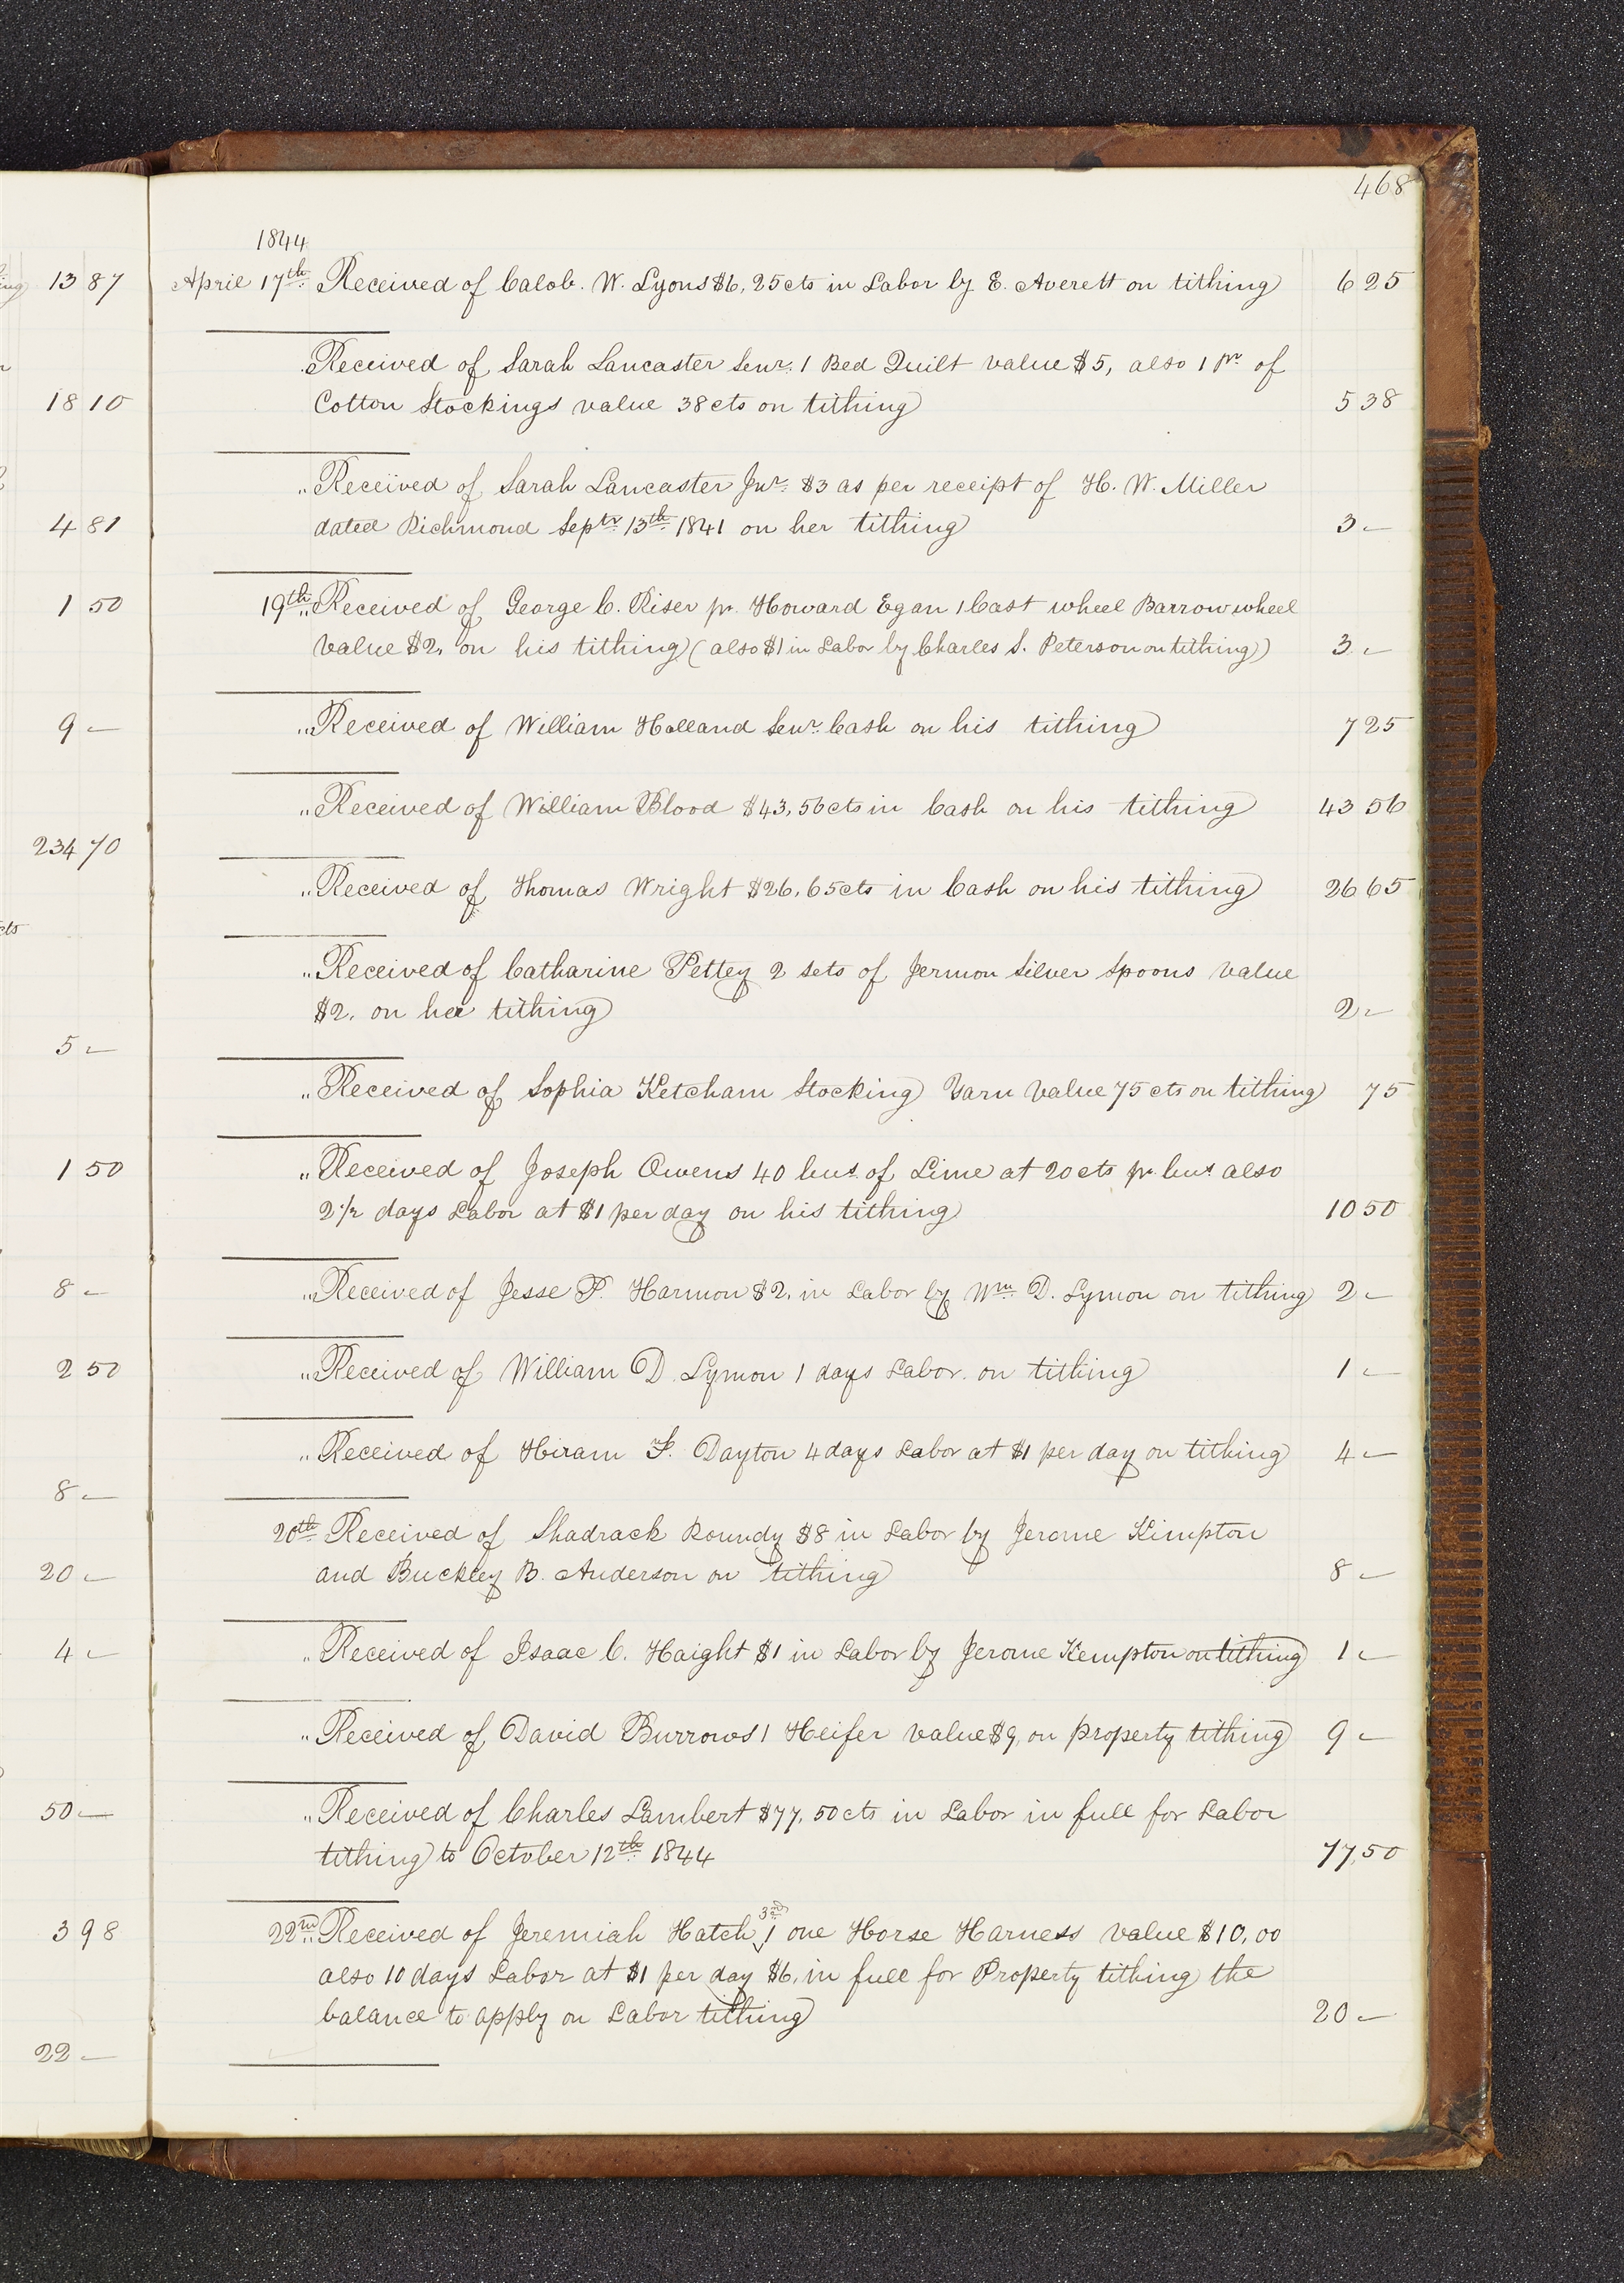 468
1844
April 17th Received of Calob. W. Lyons $6,25cts in Labor by E. Averett on tithing 6 25
Received of Sarah Lancaster Senr. 1 Bed Quilt value $5, also 1 pr. of
Cotton Stockings value 38cts on tithing 5 38
" Received of Sarah Lancaster Jnr. $3 as per receipt of H. W. Miller
dated Richmond Septr 13th 1841 on her tithing 3 –
19th " Received of George C. Riser pr. Howard Egan 1 Cast wheel Barrow wheel
value $2, on his tithing (also $1 in Labor by Charles S. Peterson on tithing) 3 –
" Received of William Holland Senr. Cash on his tithing 7 25
" Received of William Blood $43,56cts in Cash on his tithing 43 56
" Received of Thomas Wright $26,65cts in Cash on his tithing 26 65
" Received of Catharine Pettey 2 sets of Jermon Silver Spoons value
$2. on her tithing 2 –
" Received of Sophia Ketcham Stocking Yarn value 75 cts on tithing 75
" Received of Joseph Owens 40 bus. of Lime at 20cts pr. bus also
2 1/2 days Labor at $1 per day on his tithing 10 50
" Received of Jesse P. Harmon $2, in Labor by Wm. D. Lymon on tithing 2 –
" Received of William D. Lymon 1 days Labor. on tithing 1 –
" Received of Hiram F. Dayton 4 days Labor at $1 per day on tithing 4 –
20th Received of Shadrack Roundy $8 in Labor by Jerome Kimpton
and Buckley B. Anderson on tithing 8 –
" Received of Isaac C. Haight $1 in Labor by Jerome Kempton on tithing 1 –
" Received of David Burrows 1 Heifer value $9, on property tithing 9 –
" Received of Charles Lambert $77,50cts in Labor in full for Labor
tithing to October 12th 1844 77,50
22nd " Received of Jeremiah Hatch, 3rd 1 one Horse Harness value $10,00
also 10 days Labor at $1 per day $6, in full for Property tithing the
balance to apply on Labor tithing 20 –
13 87
18 10
4 81
1 50
9 –
234 70
cts
5 –
1 50
8 –
2 50
8 –
20 –
4 –
50 –
3 98
22 –